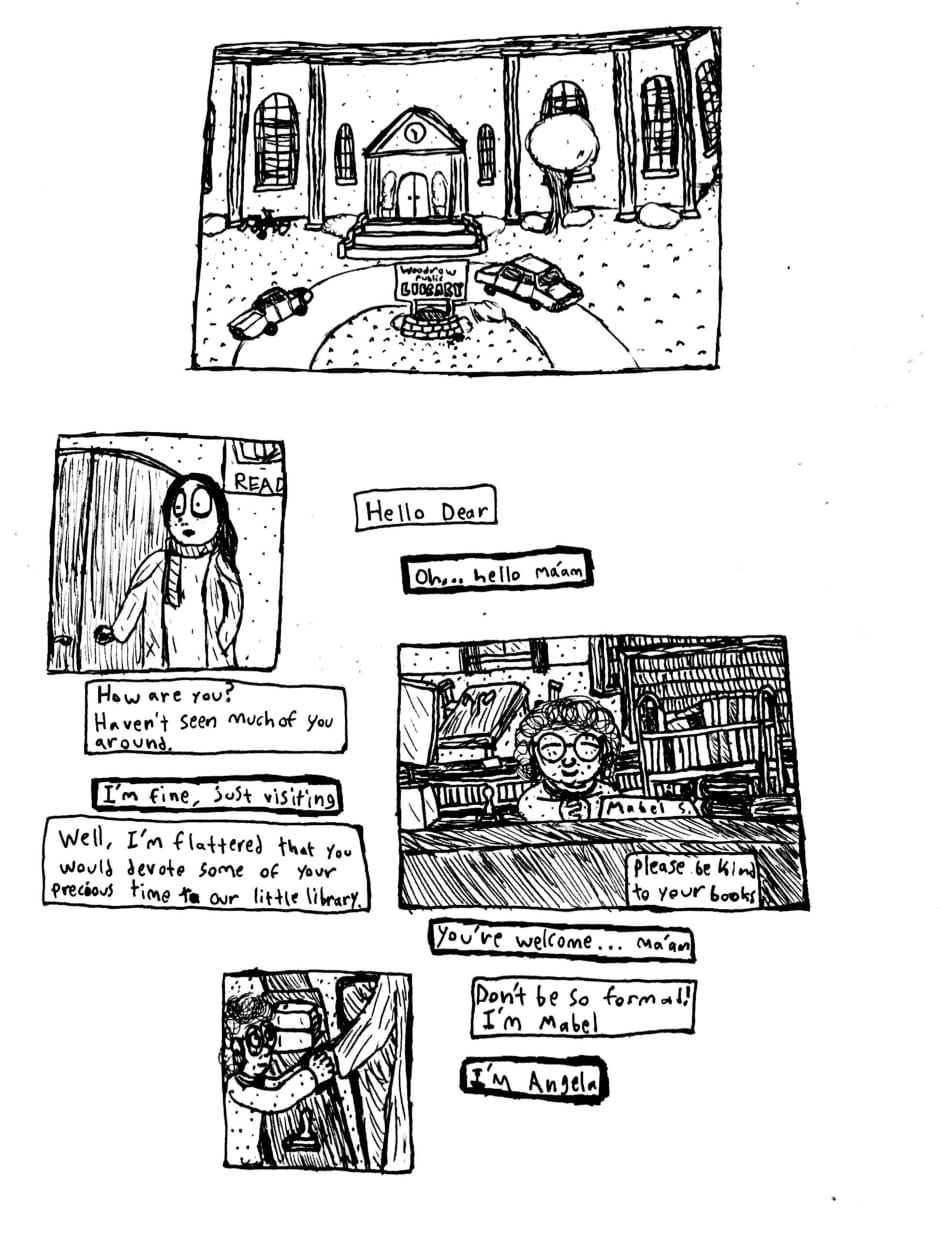 Woodrow
Public
LIBRARY
READ
Hello Dear
Oh... hello Ma'am
How are you?
Haven't seen much of you
around.
I'm fine, just visiting
Well, I'm flattered that you
would devote some of your
precious time to our little library.
Mabel S.
please be kind
to your books
You're welcome... Ma'am
Don't be so formal!
I'm Mabel
I'm Angela